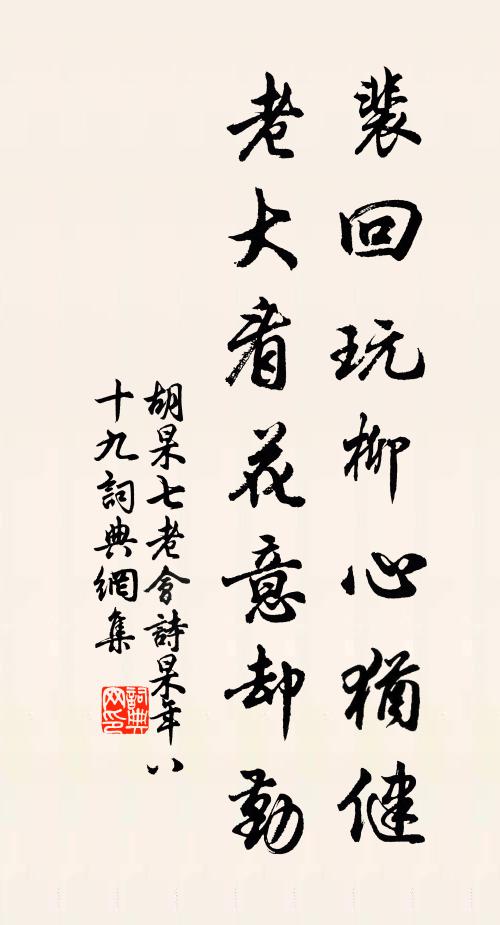 裴回玩柳心猶健
老大看花意却勤
胡杲七老會詩杲年八
十九詞典網集
詞典网印